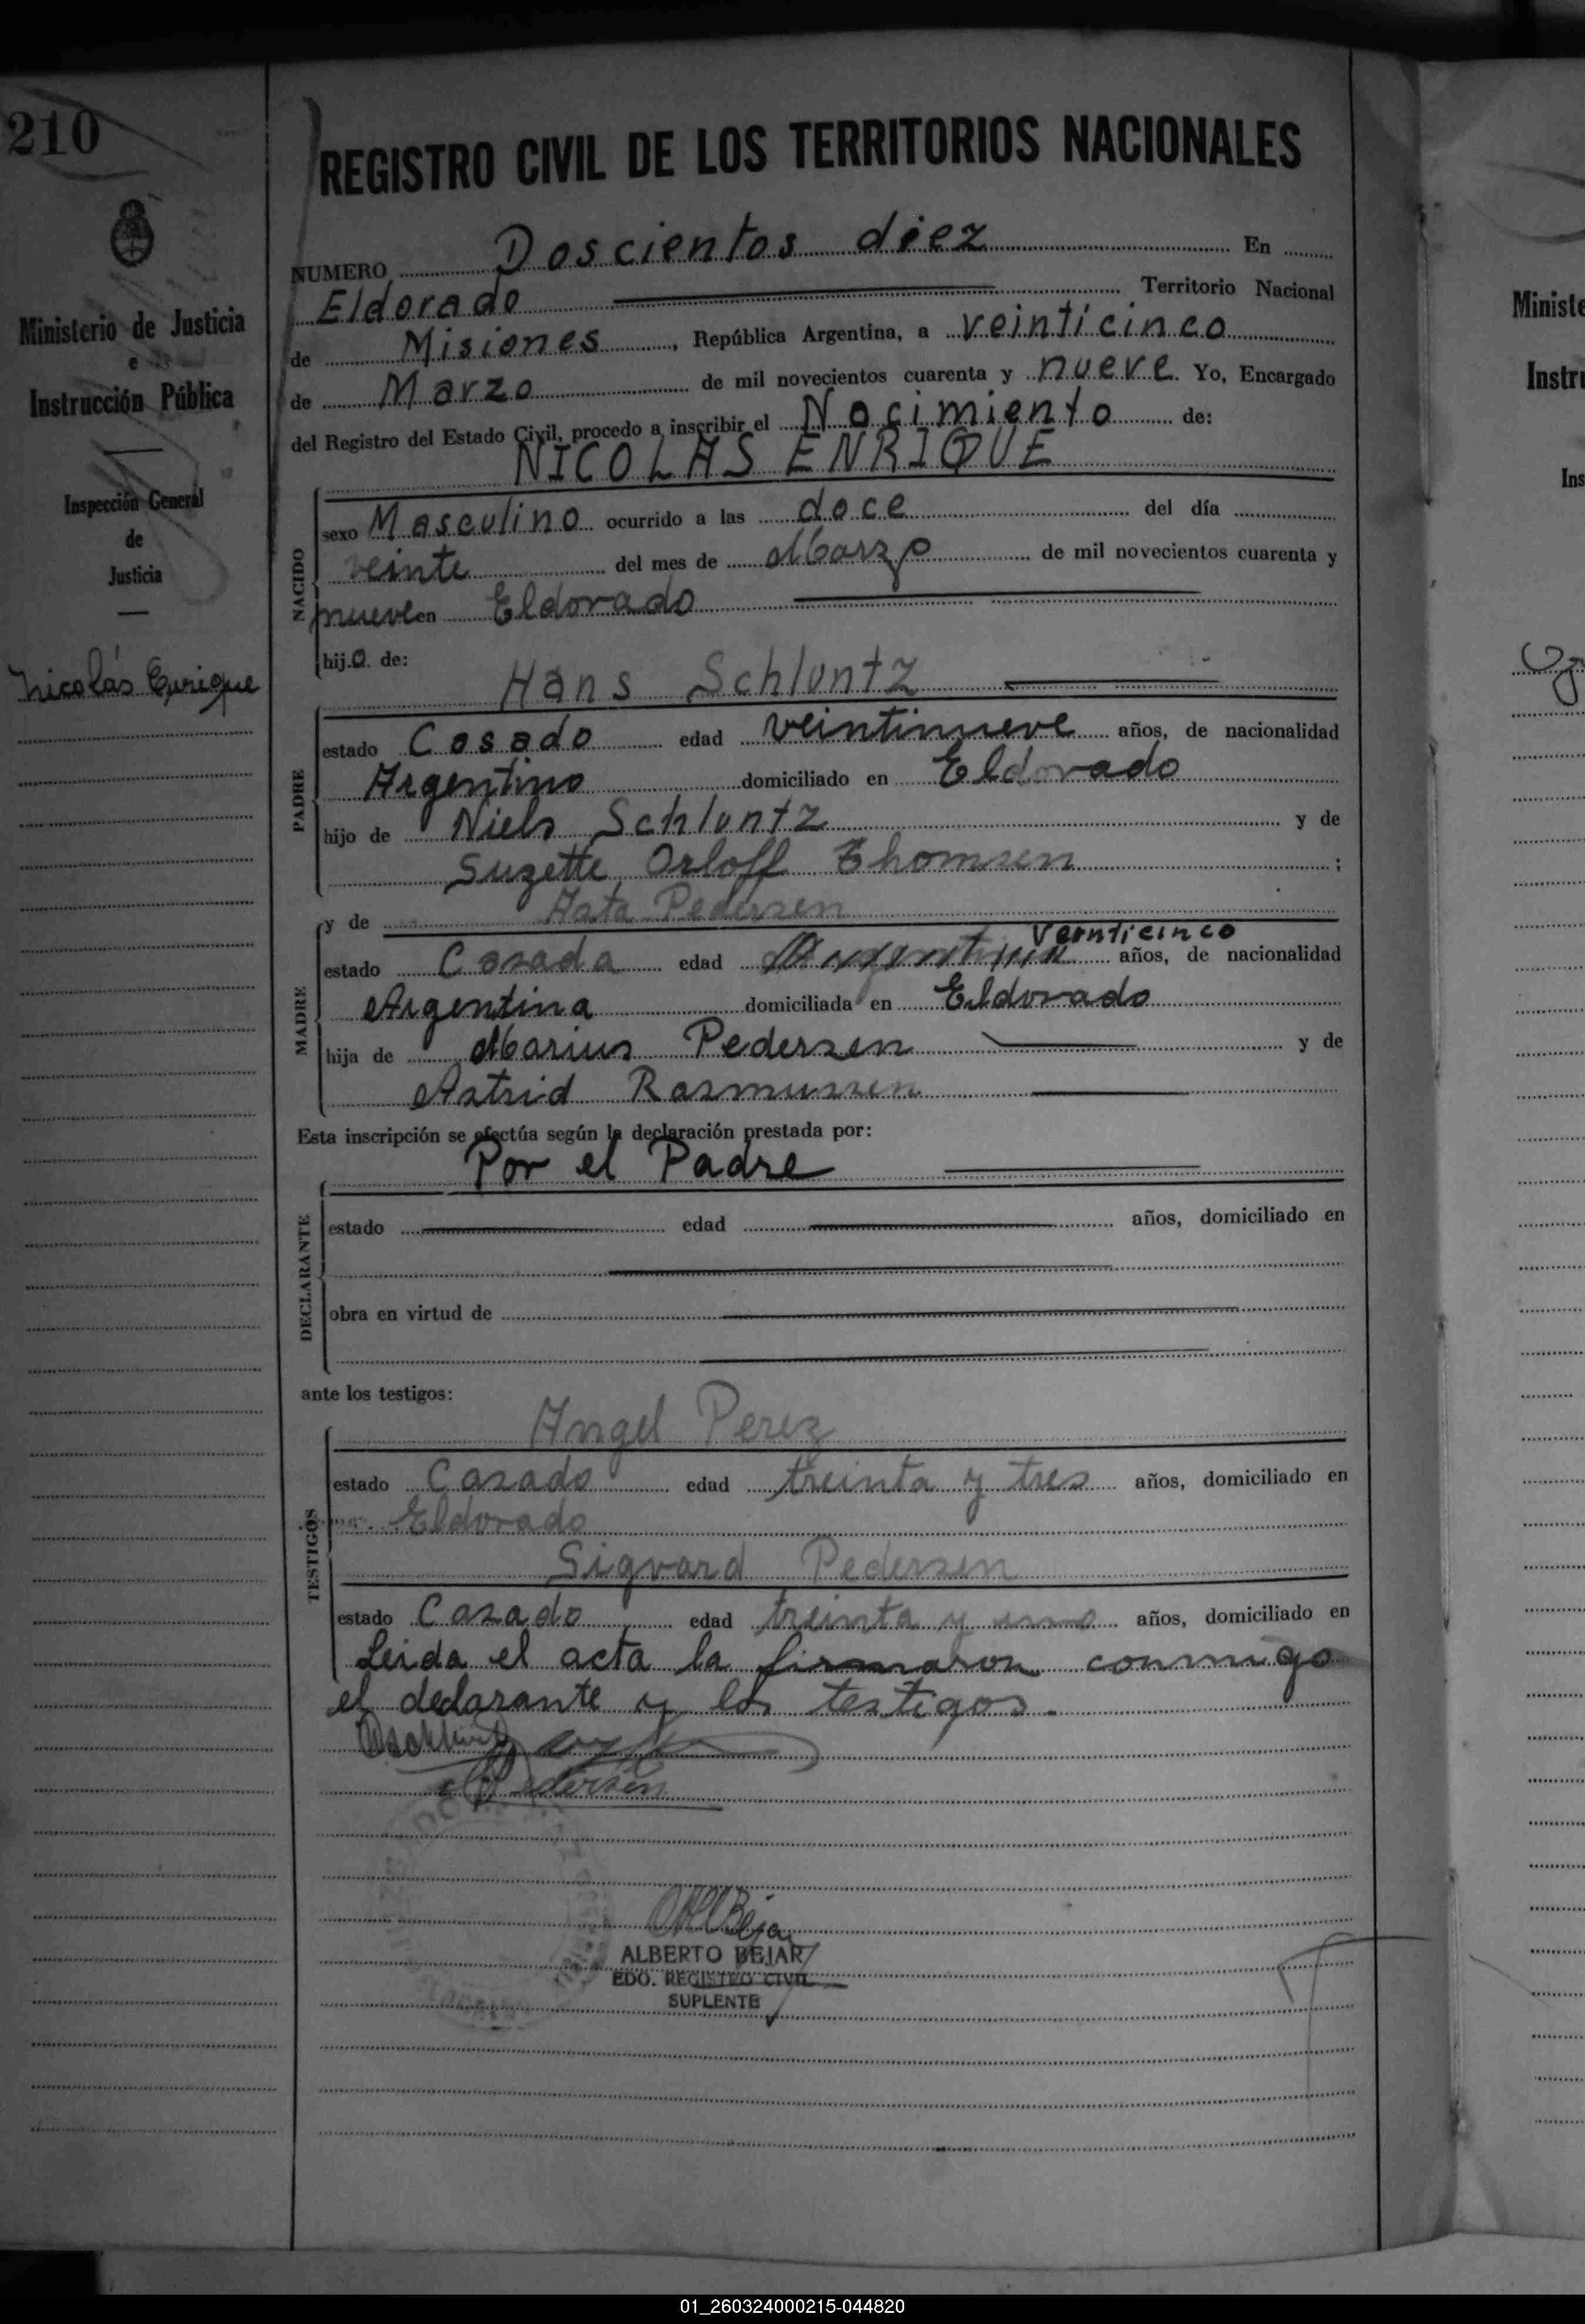 210
REGISTRO CIVIL DE LOS TERRITORIOS NACIONALES
NUMERO Doscientos diez En
Eldorado Territorio Nacional
de Misiones, República Argentina, a veinticinco
de Marzo de mil novecientos cuarenta y nueve. Yo, Encargado
del Registro del Estado Civil, procedo a inscribir el Nacimiento de:
NICOLAS ENRIQUE
Ministerio de Justicia
e
Instrucción Pública
Inspección General
de
Justicia
Nicolás Enrique
NACIDO
sexo Masculino ocurrido a las doce del día
veinte del mes de Marzo de mil novecientos cuarenta y
nueve en Eldorado
hijo de:
Hans Schluntz
PADRE
estado Casado edad veintinueve años, de nacionalidad
Argentino domiciliado en Eldorado
hijo de Niels Schluntz y de
Suzette Orloff Thomsen ;
y de Asta Pedersen
MADRE
veinticinco
estado Casada edad años, de nacionalidad
Argentina domiciliada en Eldorado
hija de Marius Pedersen y de
Astrid Rasmussen
Esta inscripción se efectúa según la declaración prestada por:
Por el Padre
DECLARANTE
estado edad años, domiciliado en
obra en virtud de
ante los testigos:
Angel Perez
TESTIGOS
estado Casado edad treinta y tres años, domiciliado en
Eldorado
Sigvard Pedersen
estado Casado edad treinta y uno años, domiciliado en
Leida el acta la firmaron conmigo
el declarante y los testigos.
Pedersen
ALBERTO BEJAR
EDO. REGISTRO CIVIL
SUPLENTE
Ministe
Instru
Ins
01_260324000215-044820